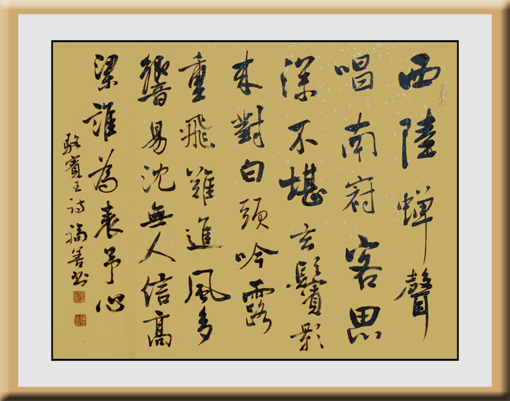 西陸蝉聲
唱南府客思
深不堪玄鬢影
来對白頭吟露
重飛難進風多
響易沈無人信高
梁誰為表予心
駱賓王诗福善书